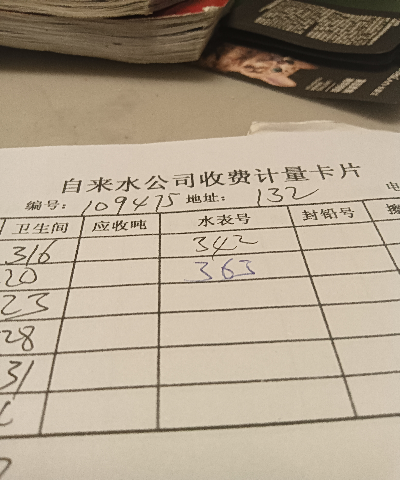 自来水公司收费计量卡片
编号：109475 地址：132 电
卫生间 应收吨 水表号 封铅号
316 342
20 363
23
28
31